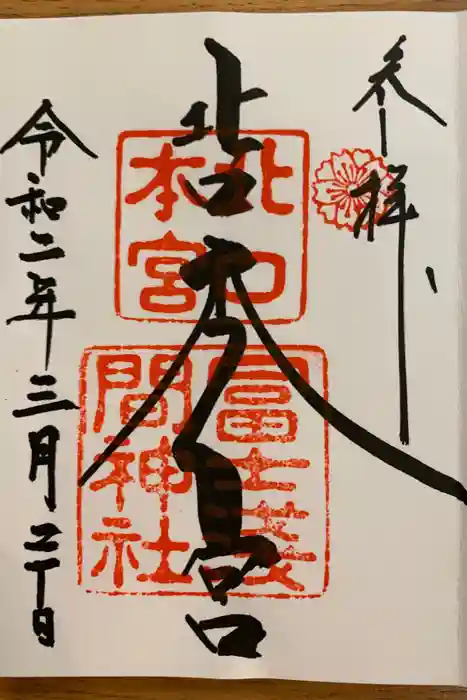 参拝
北口本宮
北口
本宮
冨士浅
間神社
令和二年三月二十日